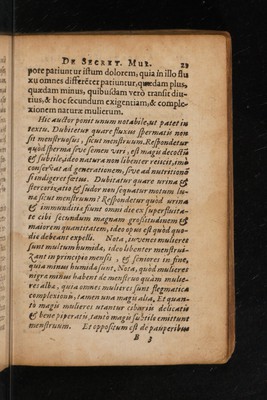 DE SECRET. MUL. 29
pore patiuntur istum dolorem, quia in illo flu
xu omnes differẽter patiuntur, quædam plus,
quædam minus, quibusdam verò transit diu-
tius, & hoc secundum exigentiam, & comple-
xionem naturæ mulierum.
Hic auctor ponit unum notabile, ut patet in
textu. Dubitetur quare fluxus spermatis non
sit menstruosus, sicut menstruum. Respondetur
quòd sperma seve semen viri, est magis decoctũ
& subtile, ideo natura non libenter reiicit, imò
conservat ad generationem, seve ad nutritionẽ
si indigeret. Dubitatur quare urina &
stercorizatio & sudor non sequatur motum lu-
næ sicut menstruum? Respondetur quòd urina
& immunditia fiunt omni die ex superfluita-
te cibi secundum magnam grossitudinem &
maiorem quantitatem, ideo opus est quòd quo-
die debeant expelli. Nota, iuvenes mulieres
sunt multum humida, ideo libenter menstrui-
zant in principio mensis, & seniores in fine,
quia minus humida sunt. Nota, quòd mulieres
negra minus habent de menstruo quàm mulie-
res alba, quia omnes mulieres sunt flegmatica
complexionis, tamen una magis alia, Et quan-
tò magis mulieres utantur cibariis delicatis
& bene piperatis, tantò magis subtile emittunt
menstruum. Et oppositum est de pauperibus
B 3